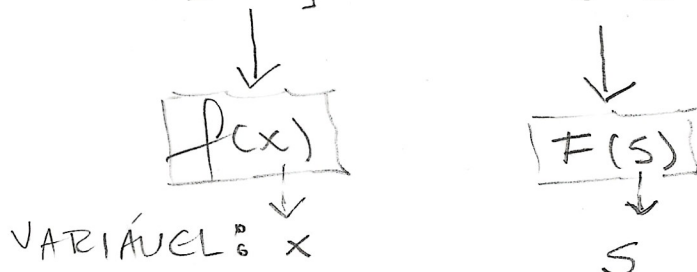 f(x) F(s)
VARIÁVEL: x s